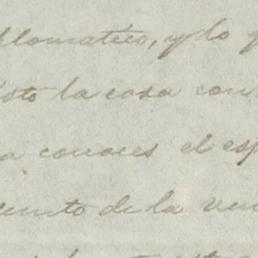 plomático, y lo
isto la cosa con
a conoces el esp
cimto de la ven